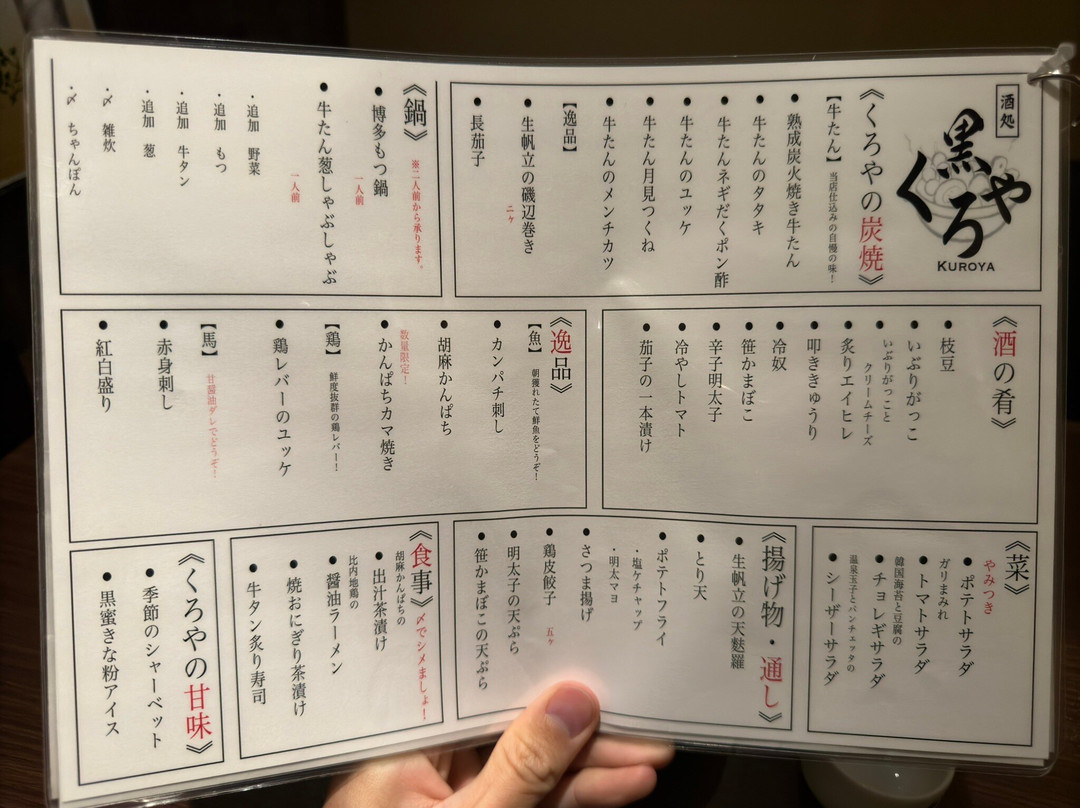 酒処
黒
くろや
KUROYA
《くろやの炭焼》
【牛たん】当店仕込みの自慢の味！
●熟成炭火焼き牛たん
●牛たんのタタキ
●牛たんネギだくポン酢
●牛たんのユッケ
●牛たん月見つくね
●牛たんのメンチカツ
【逸品】
●生帆立の磯辺巻き
二ヶ
●長茄子
《鍋》※二人前から承ります。
●博多もつ鍋
一人前
●牛たん葱しゃぶしゃぶ
一人前
・追加 野菜
・追加 もつ
・追加 牛タン
・追加 葱
・〆 雑炊
・〆 ちゃんぽん
《酒の肴》
●枝豆
●いぶりがっこ
●いぶりがっこと
クリームチーズ
●炙りエイヒレ
●叩ききゅうり
●冷奴
●笹かまぼこ
●辛子明太子
●冷やしトマト
●茄子の一本漬け
《逸品》
【魚】朝獲れたて鮮魚をどうぞ！
●カンパチ刺し
●胡麻かんぱち
数量限定！
●かんぱちカマ焼き
【鶏】鮮度抜群の鶏レバー！
●鶏レバーのユッケ
【馬】甘醤油ダレでどうぞ！
●赤身刺し
●紅白盛り
《菜》
やみつき
●ポテトサラダ
ガリまみれ
●トマトサラダ
韓国海苔と豆腐の
●チョレギサラダ
温泉玉子とパンチェッタの
●シーザーサラダ
《揚げ物・通し》
●生帆立の天麩羅
●とり天
●ポテトフライ
・塩ケチャップ
・明太マヨ
●さつま揚げ
●鶏皮餃子 五ヶ
●明太子の天ぷら
●笹かまぼこの天ぷら
《食事》〆でシメましょ！
胡麻かんぱちの
●出汁茶漬け
比内地鶏の
●醤油ラーメン
●焼おにぎり茶漬け
●牛タン炙り寿司
《くろやの甘味》
●季節のシャーベット
●黒蜜きな粉アイス